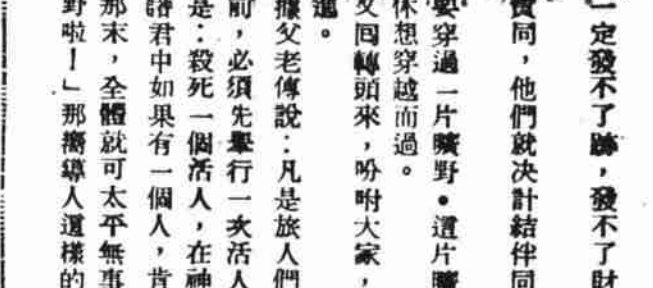 一定發不了跡,發不了財
同,他們就決計結伴同
要穿過一片曠野。這片曠
休想穿越而過。
又囘轉頭來,吩咐大家,
據父老傳說:凡是旅人們
前,必須先舉行一次活人
是:殺死一個活人,在神
諸君中如果有一個人,肯
那末,全體就可太平無事
野啦!」那嚮導人這樣的